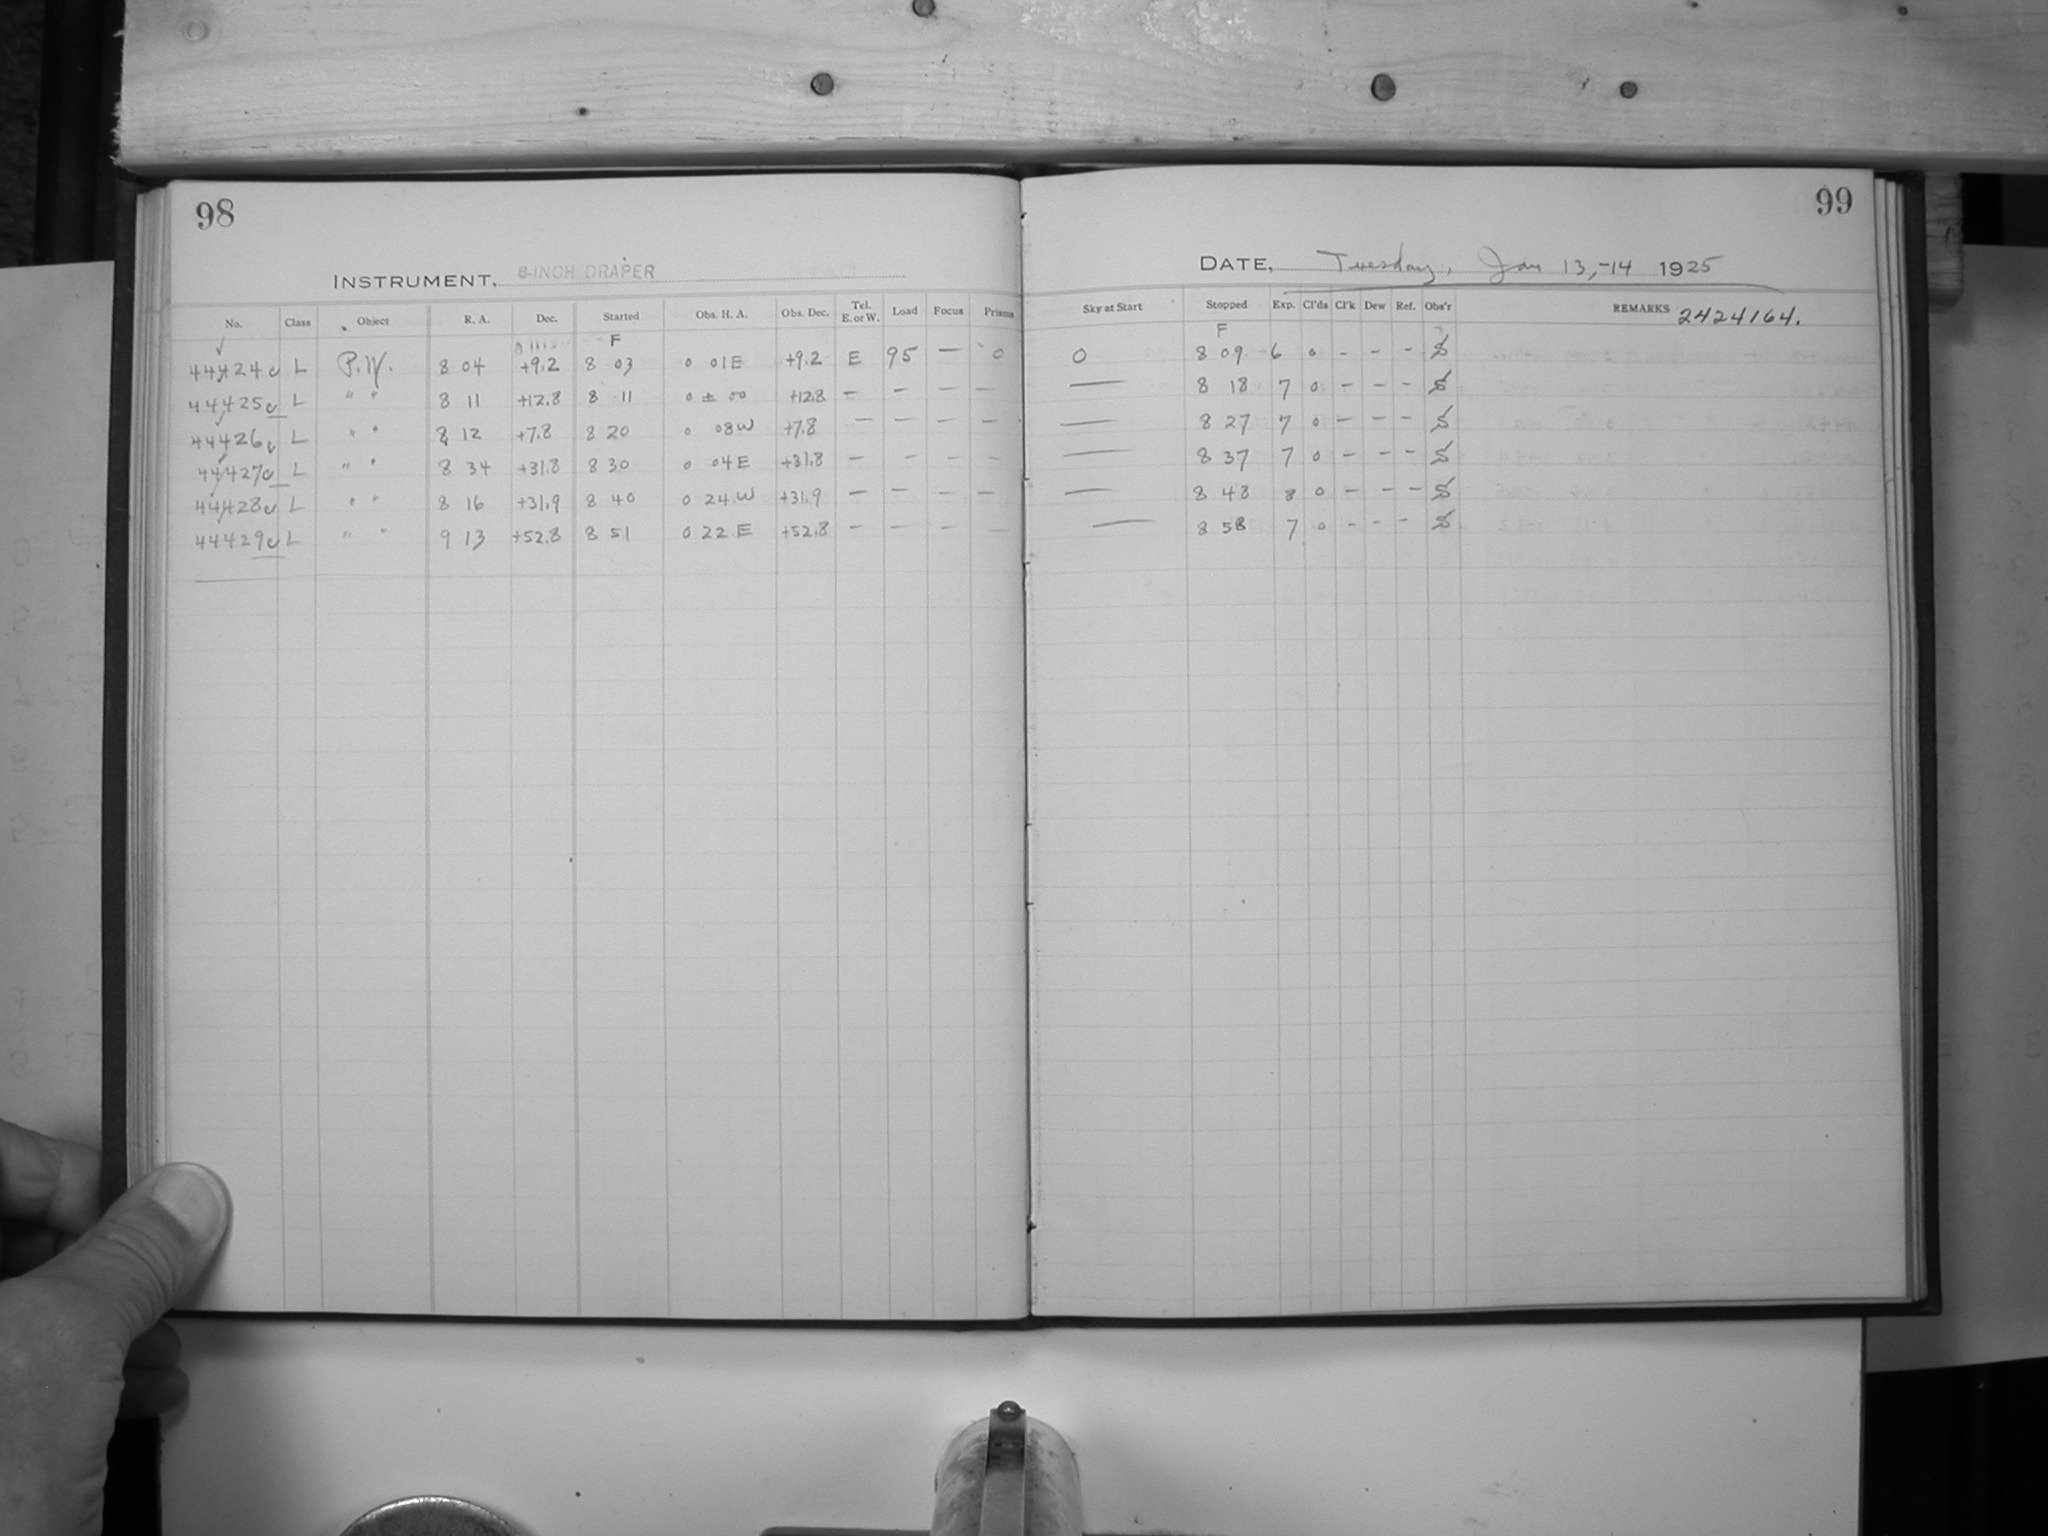 98
INSTRUMENT, 8-INCH DRAPER
No. Class Object R. A. Dec. Started Obs. H. A. Obs. Dec. Tel. E. or W. Load Focus Prisms
F
44424 L P.N. 8 04 +9.2 8 03 0 01E +9.2 E 95 — 0
44425 L " " 8 11 +12.8 8 11 0 ± 00 +12.8 — — — —
44426 L " " 8 12 +7.8 8 20 0 08W +7.8 — — — —
44427 L " " 8 34 +31.8 8 30 0 04E +31.8 — — — —
44428 L " " 8 16 +31.9 8 40 0 24W +31.9 — — — —
44429 L " " 9 13 +52.8 8 51 0 22E +52.8 — — — —
99
DATE, Tuesday, Jan 13,-14 1925
Sky at Start Stopped Exp. Cl'ds Cl'k Dew Ref. Obs'r REMARKS 2424164.
F
0 8 09 6 0 - - - S
— 8 18 7 0 - - - S
— 8 27 7 0 - - - S
— 8 37 7 0 - - - S
— 8 48 8 0 - - - S
— 8 58 7 0 - - - S